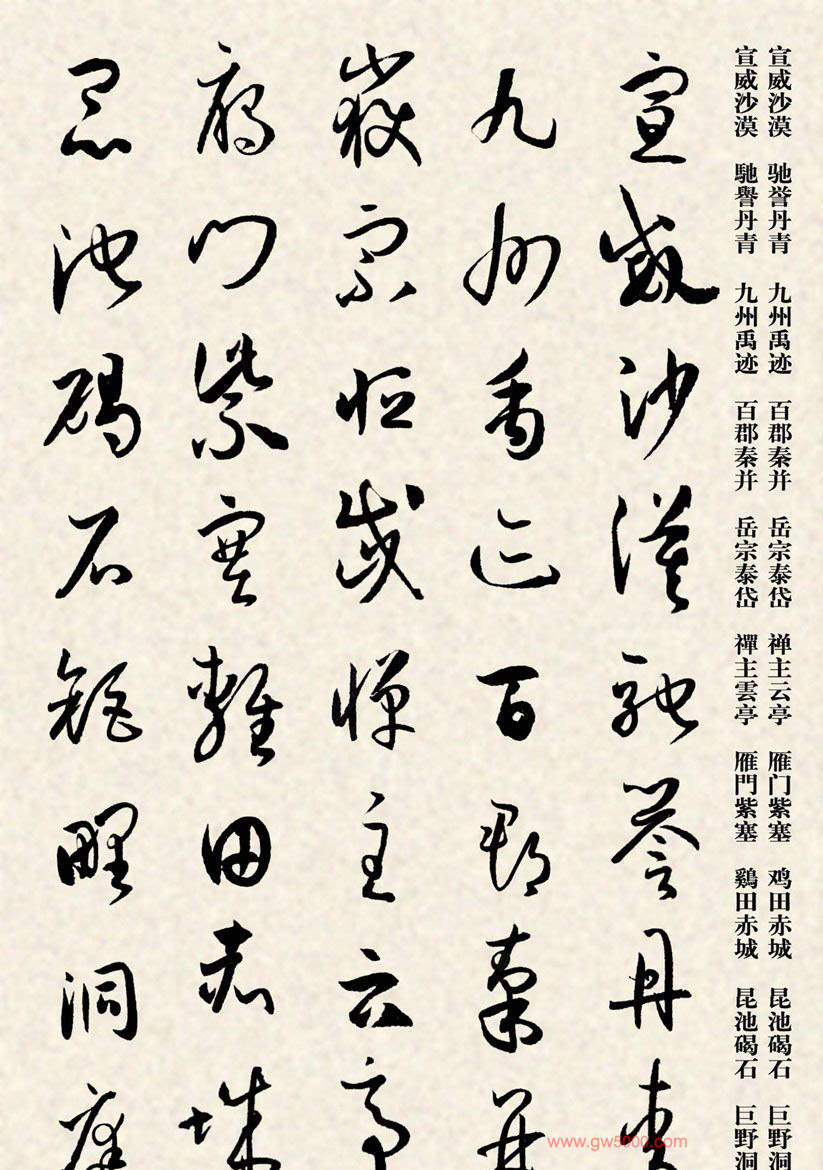 宣威沙漠 驰誉丹青 九州禹迹 百郡秦并 岳宗泰岱 禅主云亭 雁门紫塞 鸡田赤城 昆池碣石 巨野洞
宣威沙漠 馳譽丹青 九州禹迹 百郡秦并 岳宗泰岱 禪主雲亭 雁門紫塞 鷄田赤城 昆池碣石 巨野洞
宣威沙漠馳譽丹青
九州禹迹百郡秦并
嶽宗恒岱禪主云亭
雁門紫塞雞田赤城
昆池碣石鉅野洞庭
www.gw5000.com